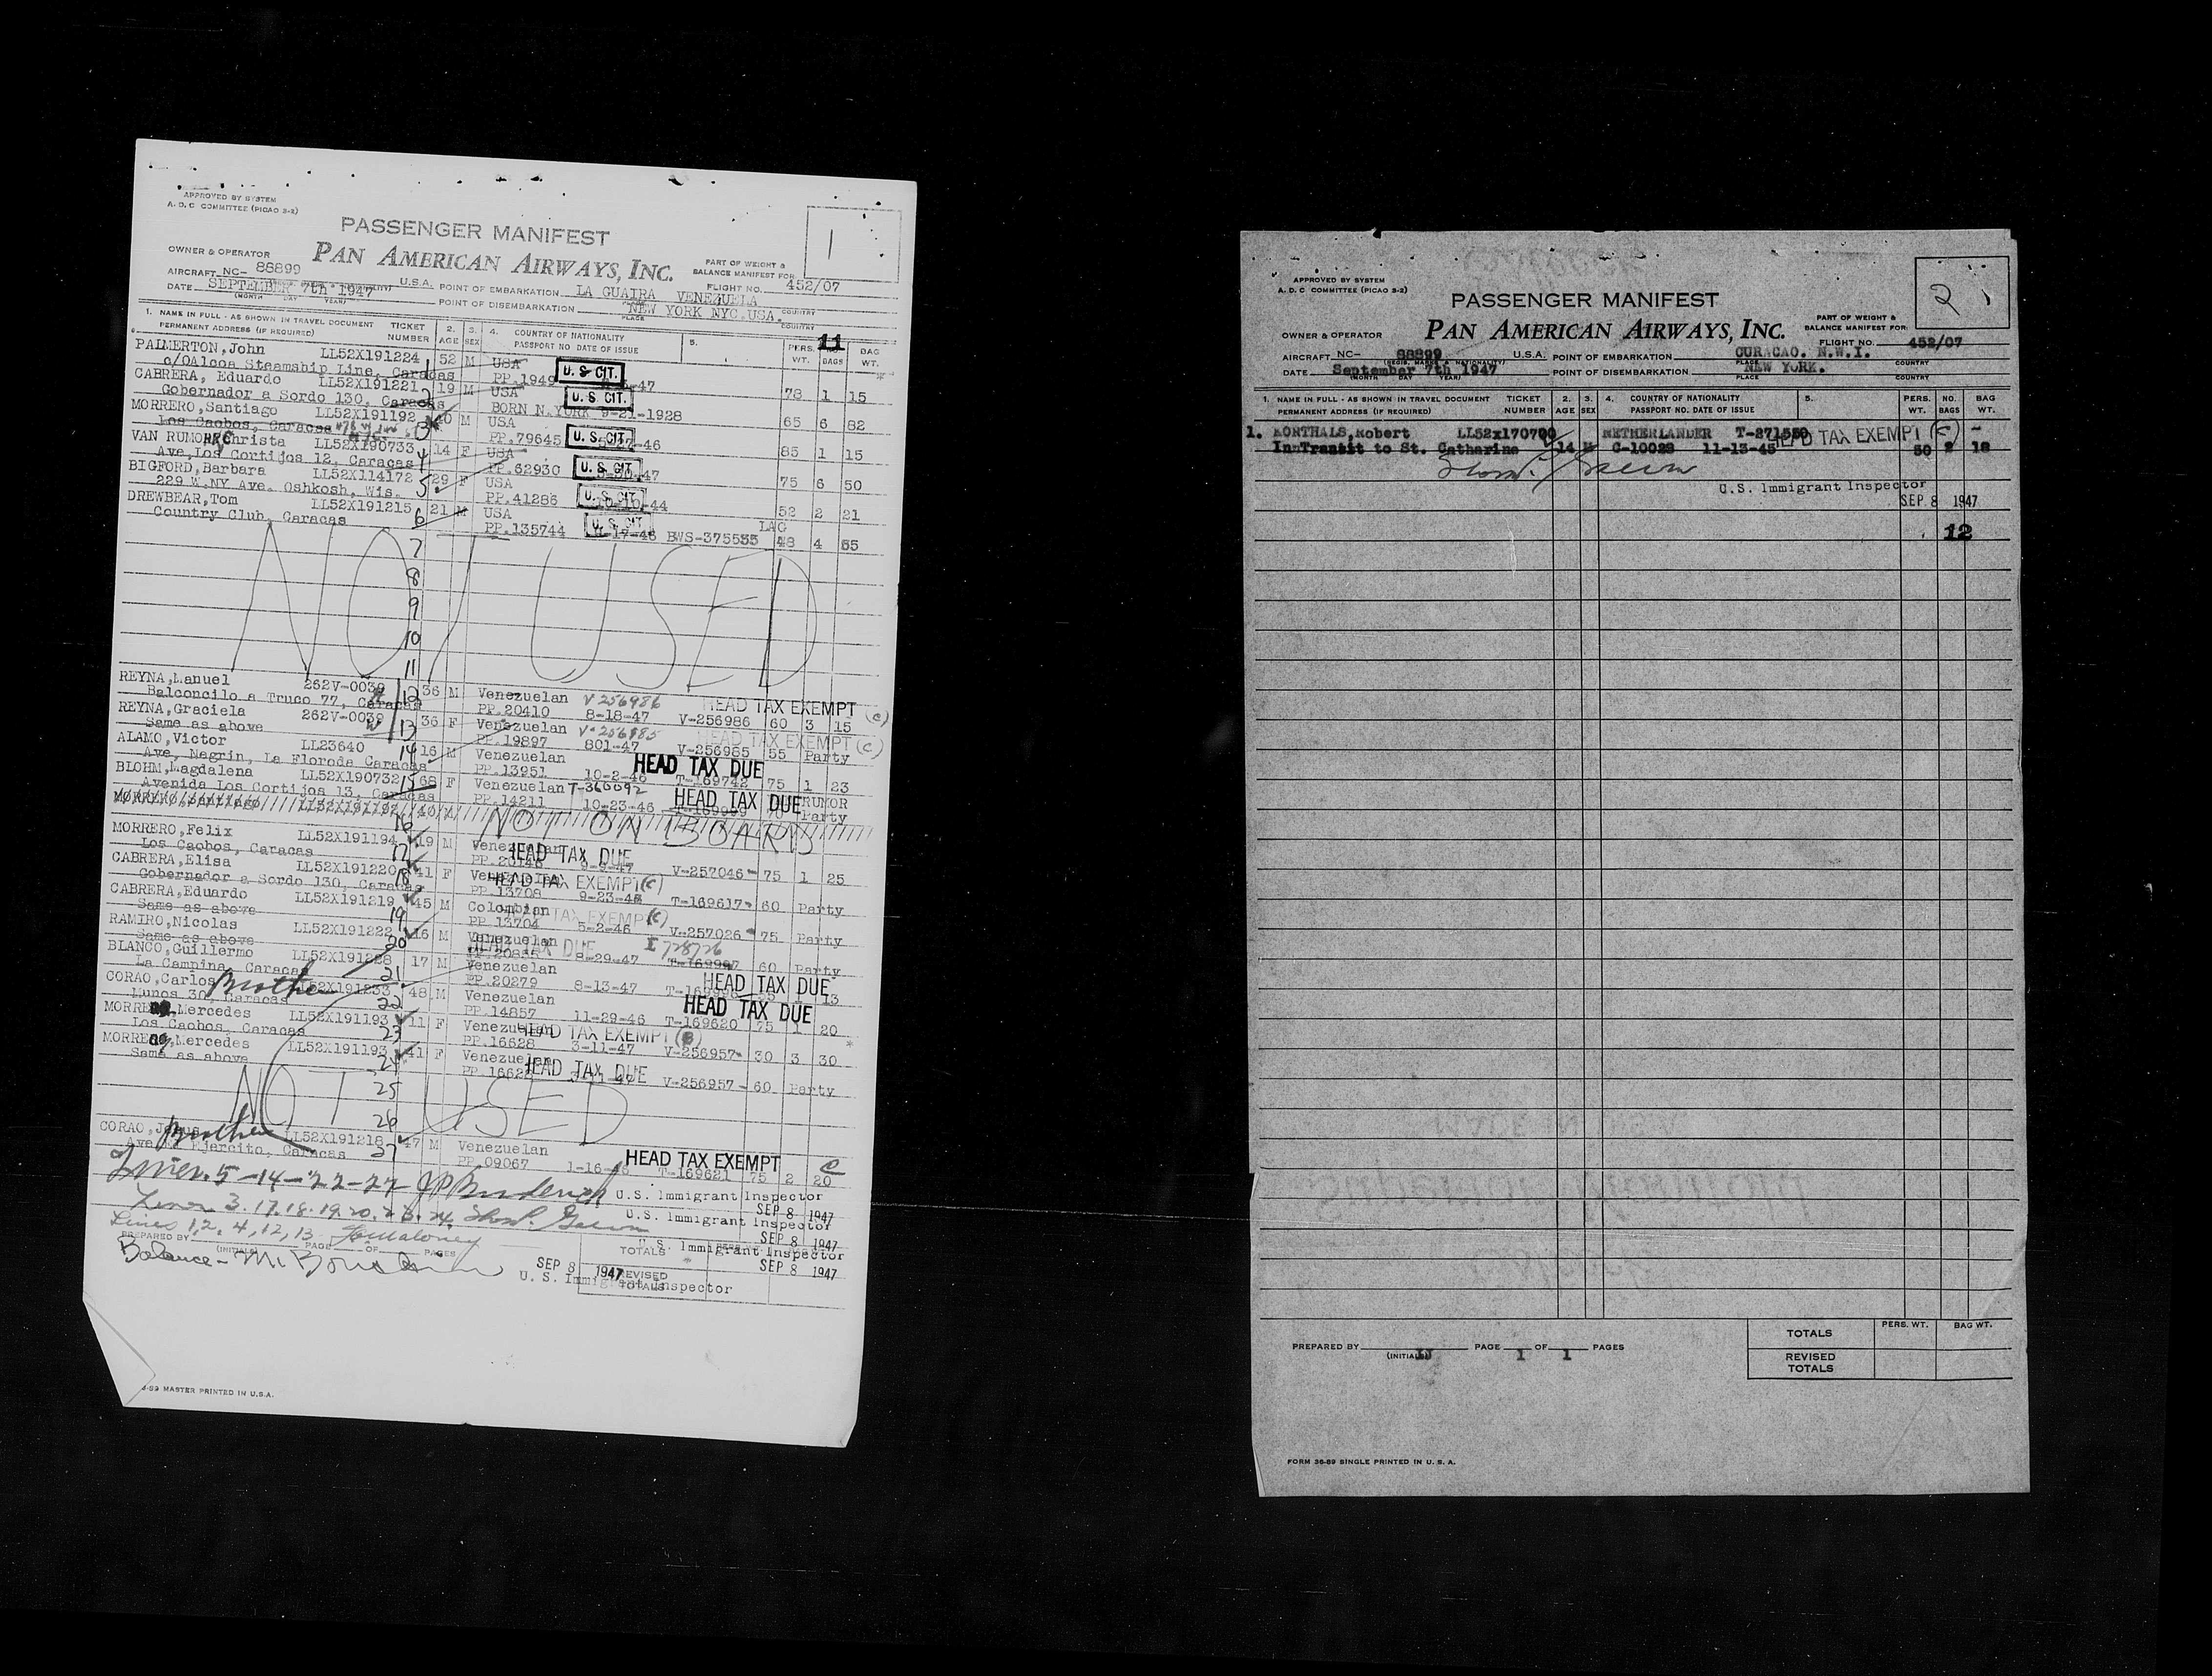 APPROVED BY SYSTEM
A. D. C COMMITTEE (PICAO 3-2)
1
PASSENGER MANIFEST
OWNER & OPERATOR PAN AMERICAN AIRWAYS, INC.
PART OF WEIGHT &
BALANCE MANIFEST FOR
AIRCRAFT NC- 88899 U.S.A. POINT OF EMBARKATION LA GUAIRA VENEZUELA FLIGHT NO. 452/07
DATE SEPTEMBER 7th 1947 POINT OF DISEMBARKATION NEW YORK NYC.USA. COUNTRY
(MONTH DAY YEAR) PLACE COUNTRY
1. NAME IN FULL - AS SHOWN IN TRAVEL DOCUMENT TICKET 2. 3. 4. COUNTRY OF NATIONALITY 5. PERS. 11 BAG
PERMANENT ADDRESS (IF REQUIRED) NUMBER AGE SEX PASSPORT NO DATE OF ISSUE WT. BAGS WT.
PALMERTON,John LL52X191224 1 52 M USA
c/oAlcoa Steamship Line, Caracas PP.1949 U. S. CIT. -47 78 1 15
CABRERA, Eduardo LL52X191221 2 19 M USA U. S. CIT.
Gobernador a Sordo 130, Caracas BORN N.YORK 9-21-1928 65 6 82
MORRERO,Santiago LL52X191192 3 40 M USA
Los Caobos, Caracas PP.79645 U. S. CIT. -46 85 1 15
VAN RUMOHR Christa LL52X190733 4 14 F USA
Ave,Los Cortijos 12, Caracas PP.62930 U. S. CIT. -47 75 6 50
BIGFORD,Barbara LL52X114172 5 29 F USA
229 W.NY Ave. Oshkosh, Wis. PP.41286 U. S. CIT. -44 52 2 21
DREWBEAR,Tom LL52X191215 6 21 M USA LAG
Country Club, Caracas PP.135744 U. S. CIT. -17-46 BWS-375535 48 4 55
7
NOT USED
8
9
10
11
REYNA,Manuel 262V-0039 12 36 M Venezuelan V256986 HEAD TAX EXEMPT (C)
Balconcilo a Truco 77, Caracas PP.20410 8-18-47 V-256986 60 3 15
REYNA,Graciela 262V-0039 13 36 F Venezuelan V-256985 HEAD TAX EXEMPT (C)
Same as above PP.19897 801-47 V-256985 55 Party
ALAMO,Victor LL23640 14 16 M Venezuelan HEAD TAX DUE
Ave, Negrin, La Floroda Caracas PP.13951 10-2-46 T-169742 75 1 23
BLOHM,Magdalena LL52X190732 15 68 F Venezuelan T-360092 HEAD TAX DUE RUMOR
Avenida Los Cortijos 13, Caracas PP.14211 10-23-46 T-169999 70 Party
MORRERO,Santiago LL52X191192 40 M
16 NOT ON BOARD
MORRERO,Felix LL52X191194 19 M Venezuelan HEAD TAX DUE
Los Caobos, Caracas 17 PP.20146 9-3-47 V-257046 75 1 25
CABRERA,Elisa LL52X191220 41 F Venezuelan HEAD TAX EXEMPT (C)
Gobernador a Sordo 130, Caracas 18 PP.13708 9-23-46 T-169617 60 Party
CABRERA,Eduardo LL52X191219 45 M Colombian HEAD TAX EXEMPT (C)
Same as above 19 PP.13704 5-2-46 V-257026 75 Party
RAMIRO,Nicolas LL52X191222 16 M Venezuelan HEAD TAX DUE I 728726
Same as above 20 PP.20835 8-29-47 T-169997 60 Party
BLANCO,Guillermo LL52X191228 17 M Venezuelan
La Campina, Caracas 21 PP.20279 8-13-47 T-169998 HEAD TAX DUE 13
CORAO,Carlos Brother LL52X191233 48 M Venezuelan HEAD TAX DUE
Munos 30, Caracas 22 PP.14857 11-29-46 T-169620 75 1 20
MORRERO,Mercedes LL52X191193 11 F Venezuelan HEAD TAX EXEMPT (B)
Los Caobos, Caracas 23 PP.16628 3-11-47 V-256957 30 3 30
MORRERO,Mercedes LL52X191193 41 F Venezuelan HEAD TAX DUE
Same as above 24 PP.16628 3-11-47 V-256957 60 Party
25
NOT USED
26
CORAO,Jesus Brother LL52X191218 47 M Venezuelan HEAD TAX EXEMPT C
Ave, El Ejercito, Caracas 27 PP.09067 1-16-46 T-169621 75 2 20
Lines. 5-14-22-27 U.S. Immigrant Inspector
SEP 8 1947
Lines 3. 17. 18. 19. 20. 23. 24. U.S. Immigrant Inspector
SEP 8 1947
Lines 1, 2, 4, 12, 13 U.S. Immigrant Inspector
SEP 8 1947
PREPARED BY (INITIALS) PAGE OF PAGES
TOTALS
Balance-
SEP 8 1947 REVISED TOTALS
U. S. Immigrant Inspector
-89 MASTER PRINTED IN U.S.A.
APPROVED BY SYSTEM
A. D. C COMMITTEE (PICAO 3-2)
2
PASSENGER MANIFEST
OWNER & OPERATOR PAN AMERICAN AIRWAYS, INC.
PART OF WEIGHT &
BALANCE MANIFEST FOR
FLIGHT NO. 452/07
AIRCRAFT NC- 88899 U.S.A. POINT OF EMBARKATION CURACAO. N.W.I.
(REGIS. MARKS & NATIONALITY) PLACE COUNTRY
DATE September 7th 1947 POINT OF DISEMBARKATION NEW YORK.
(MONTH DAY YEAR) PLACE COUNTRY
1. NAME IN FULL - AS SHOWN IN TRAVEL DOCUMENT TICKET 2. 3. 4. COUNTRY OF NATIONALITY 5. PERS. NO. BAG
PERMANENT ADDRESS (IF REQUIRED) NUMBER AGE SEX PASSPORT NO. DATE OF ISSUE WT. BAGS WT.
1. KORTHALS,Robert LL52x170700 NETHERLANDER T-271550 HEAD TAX EXEMPT (C)
InnTransit to St. Catharine 14 M C-10028 11-13-45 50 2 18
U.S. Immigrant Inspector
SEP 8 1947
12
PREPARED BY (INITIALS) PAGE 1 OF 1 PAGES
PERS. WT. BAG WT.
TOTALS
REVISED
TOTALS
FORM 36-89 SINGLE PRINTED IN U. S. A.